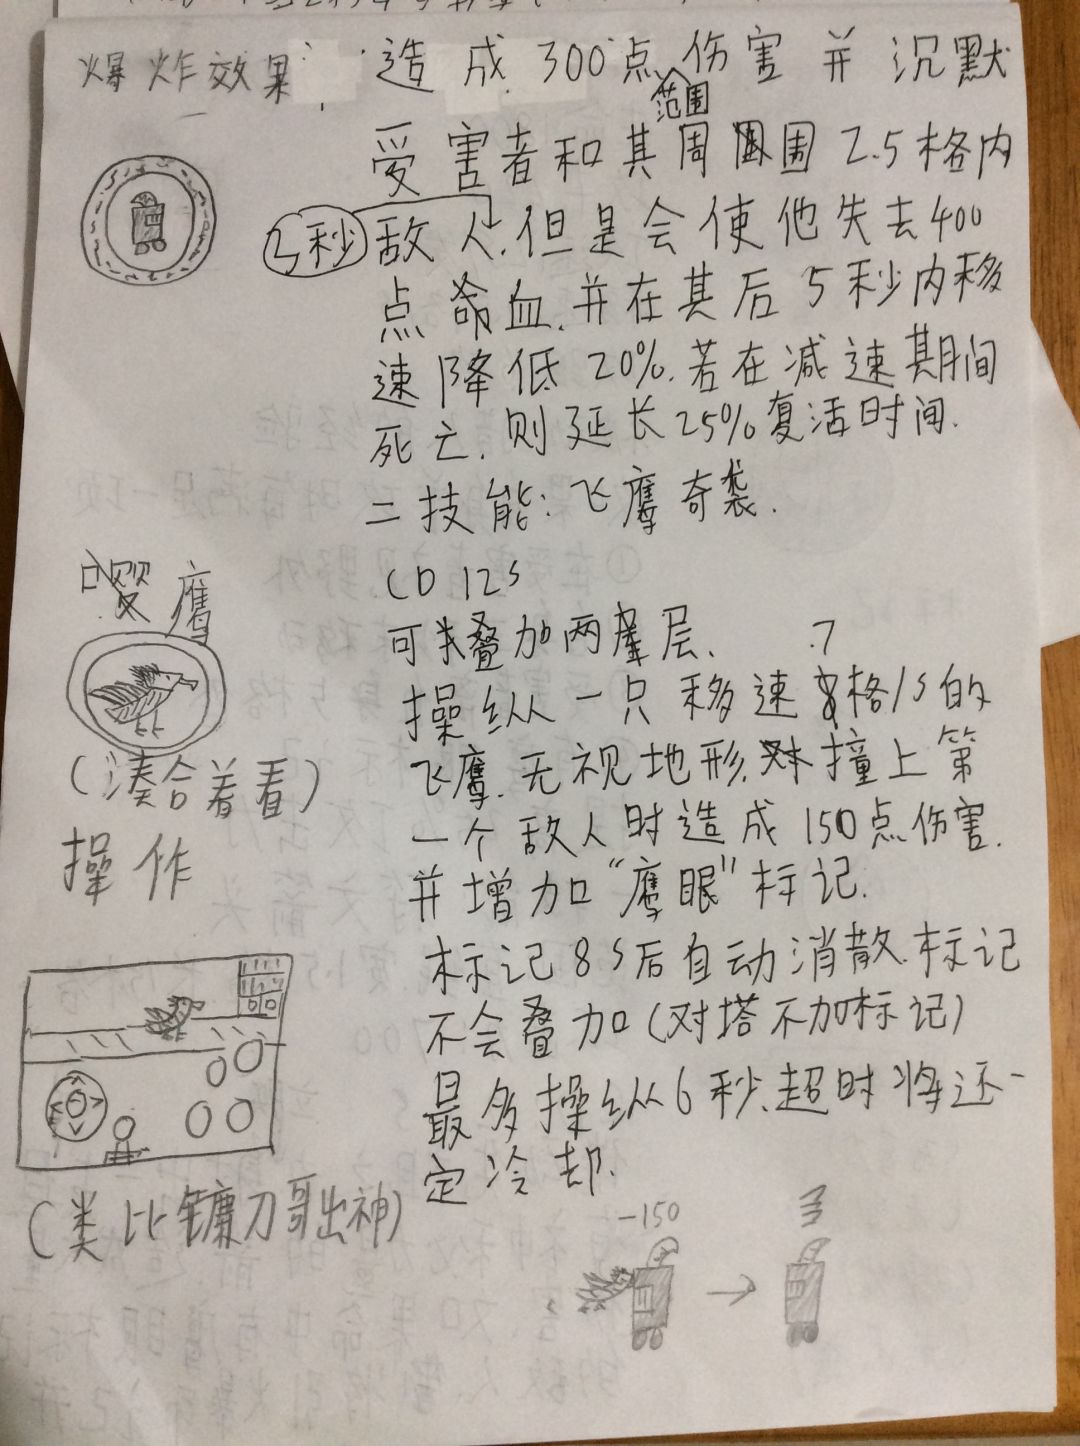 爆炸效果: 造成300点范围伤害并沉默
受害者和其周围2.5格内
敌人3秒.但是会使他失去400
点命血.并在其后5秒内移
速降低20%.若在减速期间
死亡.则延长25%复活时间.
二技能:飞鹰奇袭.
CD 12s
可叠加两层、
操纵一只移速7格/s的
飞鹰.无视地形.撞上第
一个敌人时造成150点伤害.
并增加“鹰眼”标记.
标记8s后自动消散.标记
不会叠加(对塔不加标记)
最多操纵6秒.超时将还一
定冷却.
鹰
(凑合着看)
操作
(类比镰刀哥出神)
-150